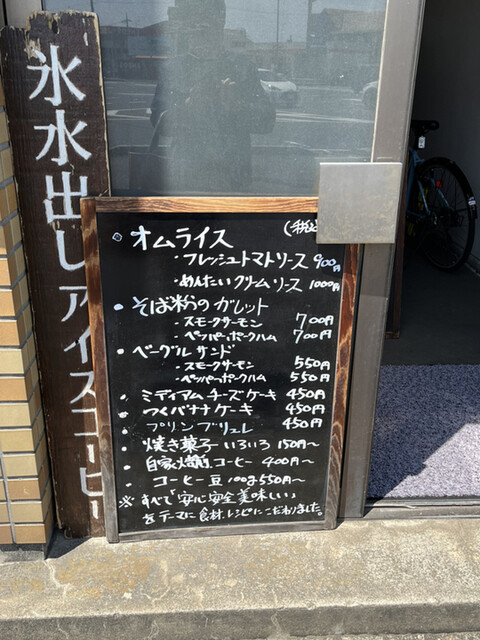 氷水出しアイスコーヒー
(税込)
• オムライス
・フレッシュトマトソース 900円
・めんたいクリームソース 1000円
• そば粉のガレット
・スモークサーモン 700円
・ペッパーポークハム 700円
• ベーグルサンド
・スモークサーモン 550円
・ペッパーポークハム 550円
• ミディアムチーズケーキ 450円
• つくバナナケーキ 450円
• プリンブリュレ 450円
• 焼き菓子いろいろ 150円～
• 自家焙煎コーヒー 400円～
• コーヒー豆 100g 550円～
※すべて「安心安全美味しい」
をテーマに食材、レシピにこだわりました。